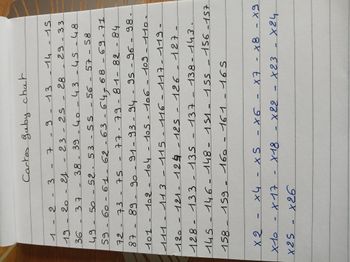 Cartes Gaby chat
1 - 2 - 3 - 7 - 9 - 13 - 14 - 15
19 - 20 - 21 - 23 - 25 - 28 - 29 - 33
36 - 37 - 38 - 39 - 40 - 43 - 45 - 48
49 - 50 - 52 - 53 - 55 - 56 - 57 - 58
59 - 60 - 61 62 63 64 - 68 - 69 - 71
72 - 73 - 75 - 77 - 79 81 - 82 - 84
87 - 89 - 90 - 91 - 93 - 94 - 95 - 96 - 98 -
101 - 102 - 104 - 105 - 106 - 109 - 110 -
111 - 113 - 115 - 116 - 117 - 119 -
120 - 121 - 124 - 125 - 126 - 127
128 - 133 - 135 - 137 - 138 - 143 -
145 - 146 - 148 - 151 - 155 - 156 - 157
158 - 159 - 160 - 161 - 165
x2 - x4 - x5 - x6 - x7 - x8 - x9
x10 - x17 - x18 - x22 - x23 - x24
x25 - x26